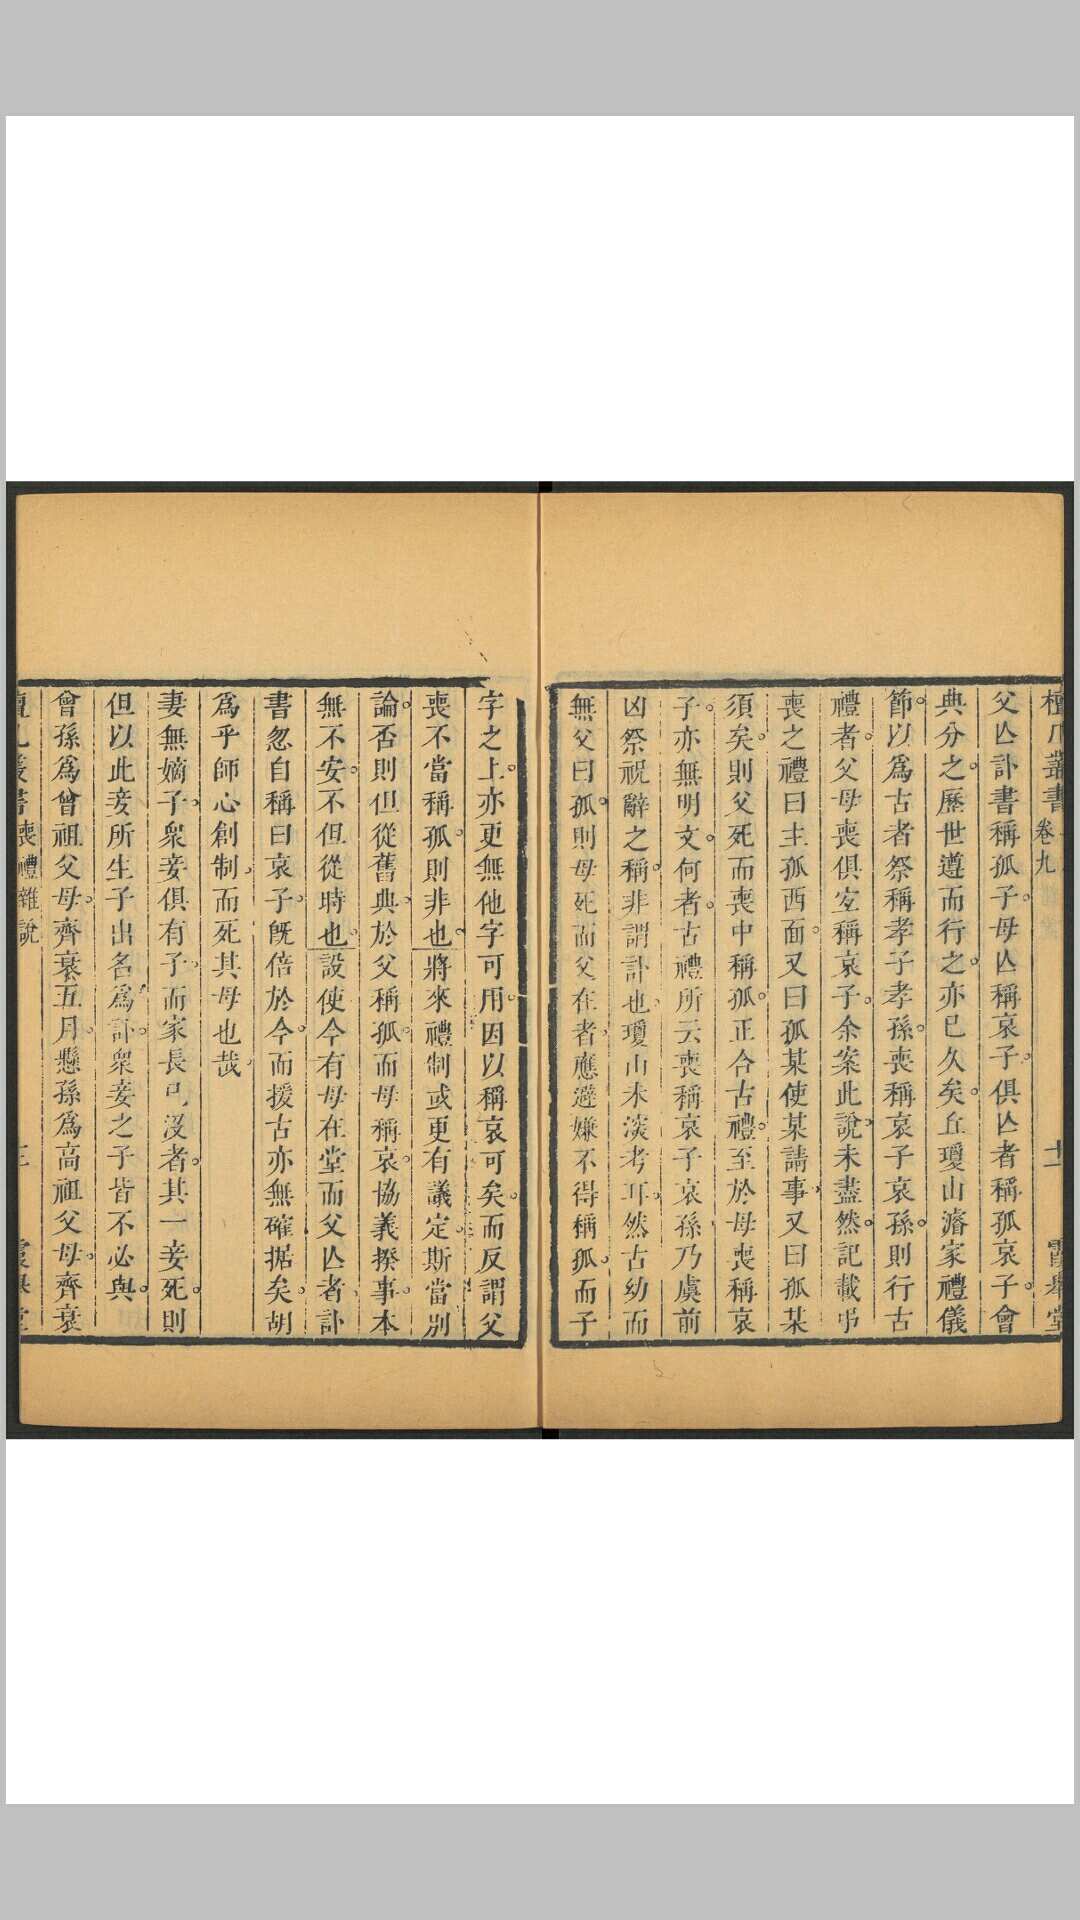 檀几叢書 卷九 十一 霞舉堂
父亾訃書稱孤子母亾稱哀子俱亾者稱孤哀子會
典分之歷世遵而行之亦已久矣丘瓊山濬家禮儀
節以為古者祭稱孝子孝孫喪稱哀子哀孫則行古
禮者父母喪俱宐稱哀子余案此說未盡然記載弔
喪之禮曰主孤西面又曰孤某使某請事又曰孤某
須矣則父死而喪中稱孤正合古禮至於母喪稱哀
子亦無明文何者古禮所云喪稱哀子哀孫乃虞前
凶祭祝辭之稱非謂訃也瓊山未深考耳然古幼而
無父曰孤則母死而父在者應避嫌不得稱孤而子
字之上亦更無他字可用因以稱哀可矣而反謂父
喪不當稱孤則非也將來禮制或更有議定斯當別
論否則但從舊典於父稱孤而母稱哀協義揆事本
無不安不但從時也設使今有母在堂而父亾者訃
書忽自稱曰哀子旣倍於今而援古亦無確据矣胡
爲乎師心創制而死其母也哉
妻無嫡子衆妾俱有子而家長已没者其一妾死則
但以此妾所生子出名爲訃衆妾之子皆不必與
曾孫爲曾祖父母齊衰五月懸孫爲高祖父母齊衰
檀几叢書 喪禮雜說 霞舉堂